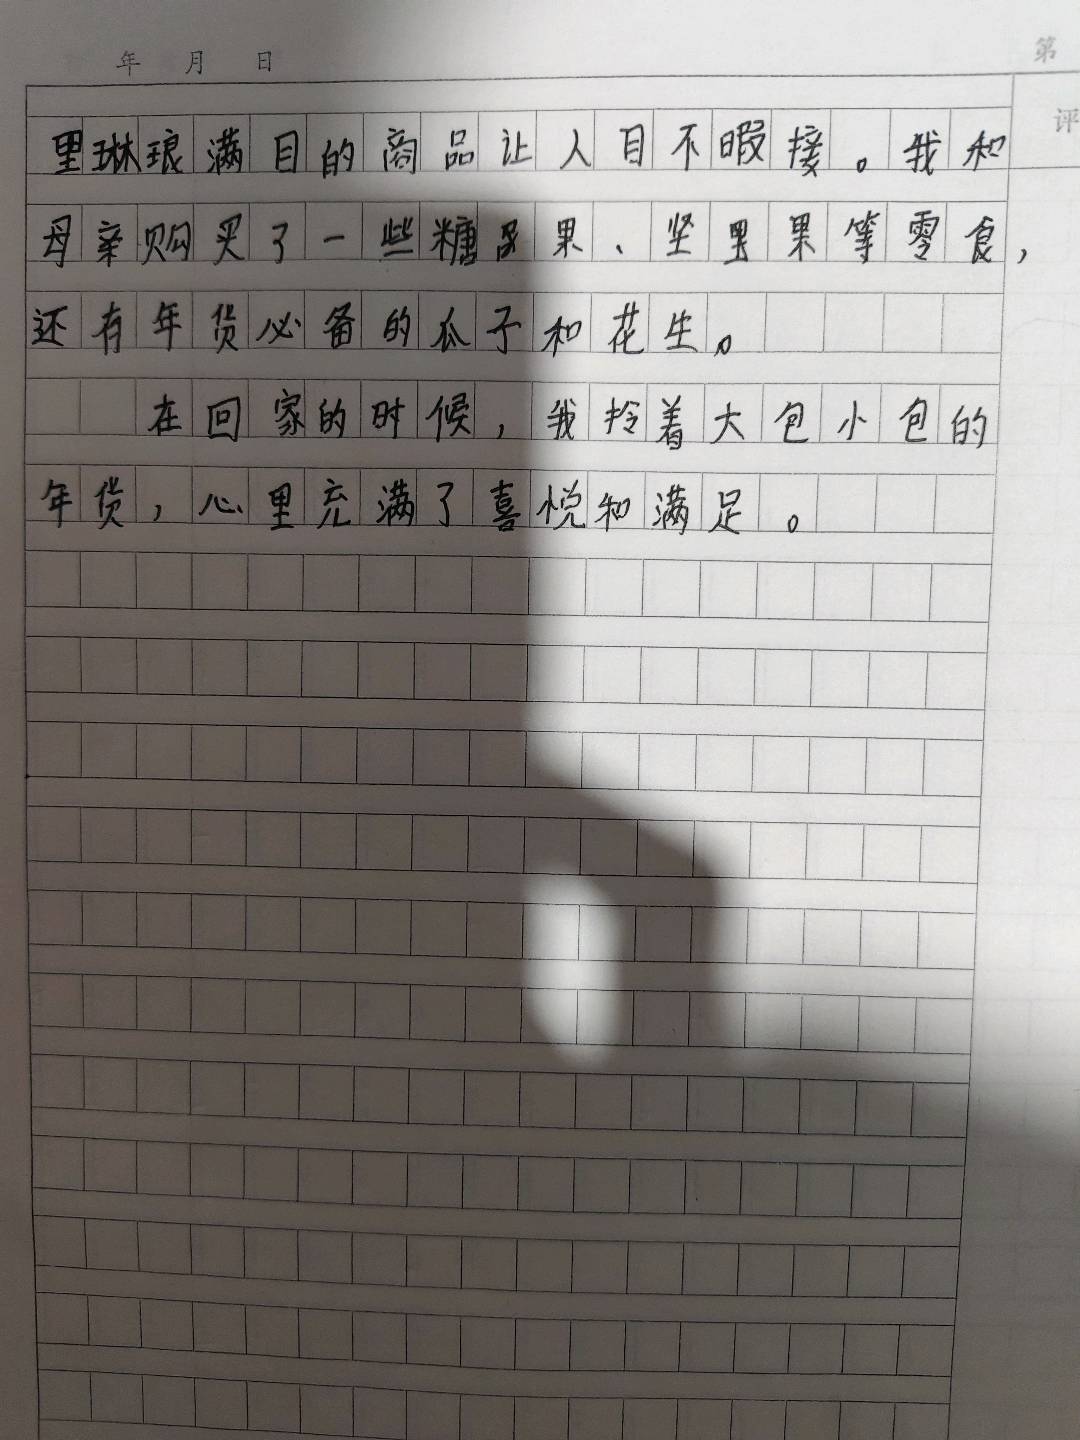 年 月 日
第
评
里琳琅满目的商品让人目不暇接。我和
母亲购买了一些糖果、坚果等零食，
还有年货必备的瓜子和花生。
在回家的时候，我拎着大包小包的
年货，心里充满了喜悦和满足。